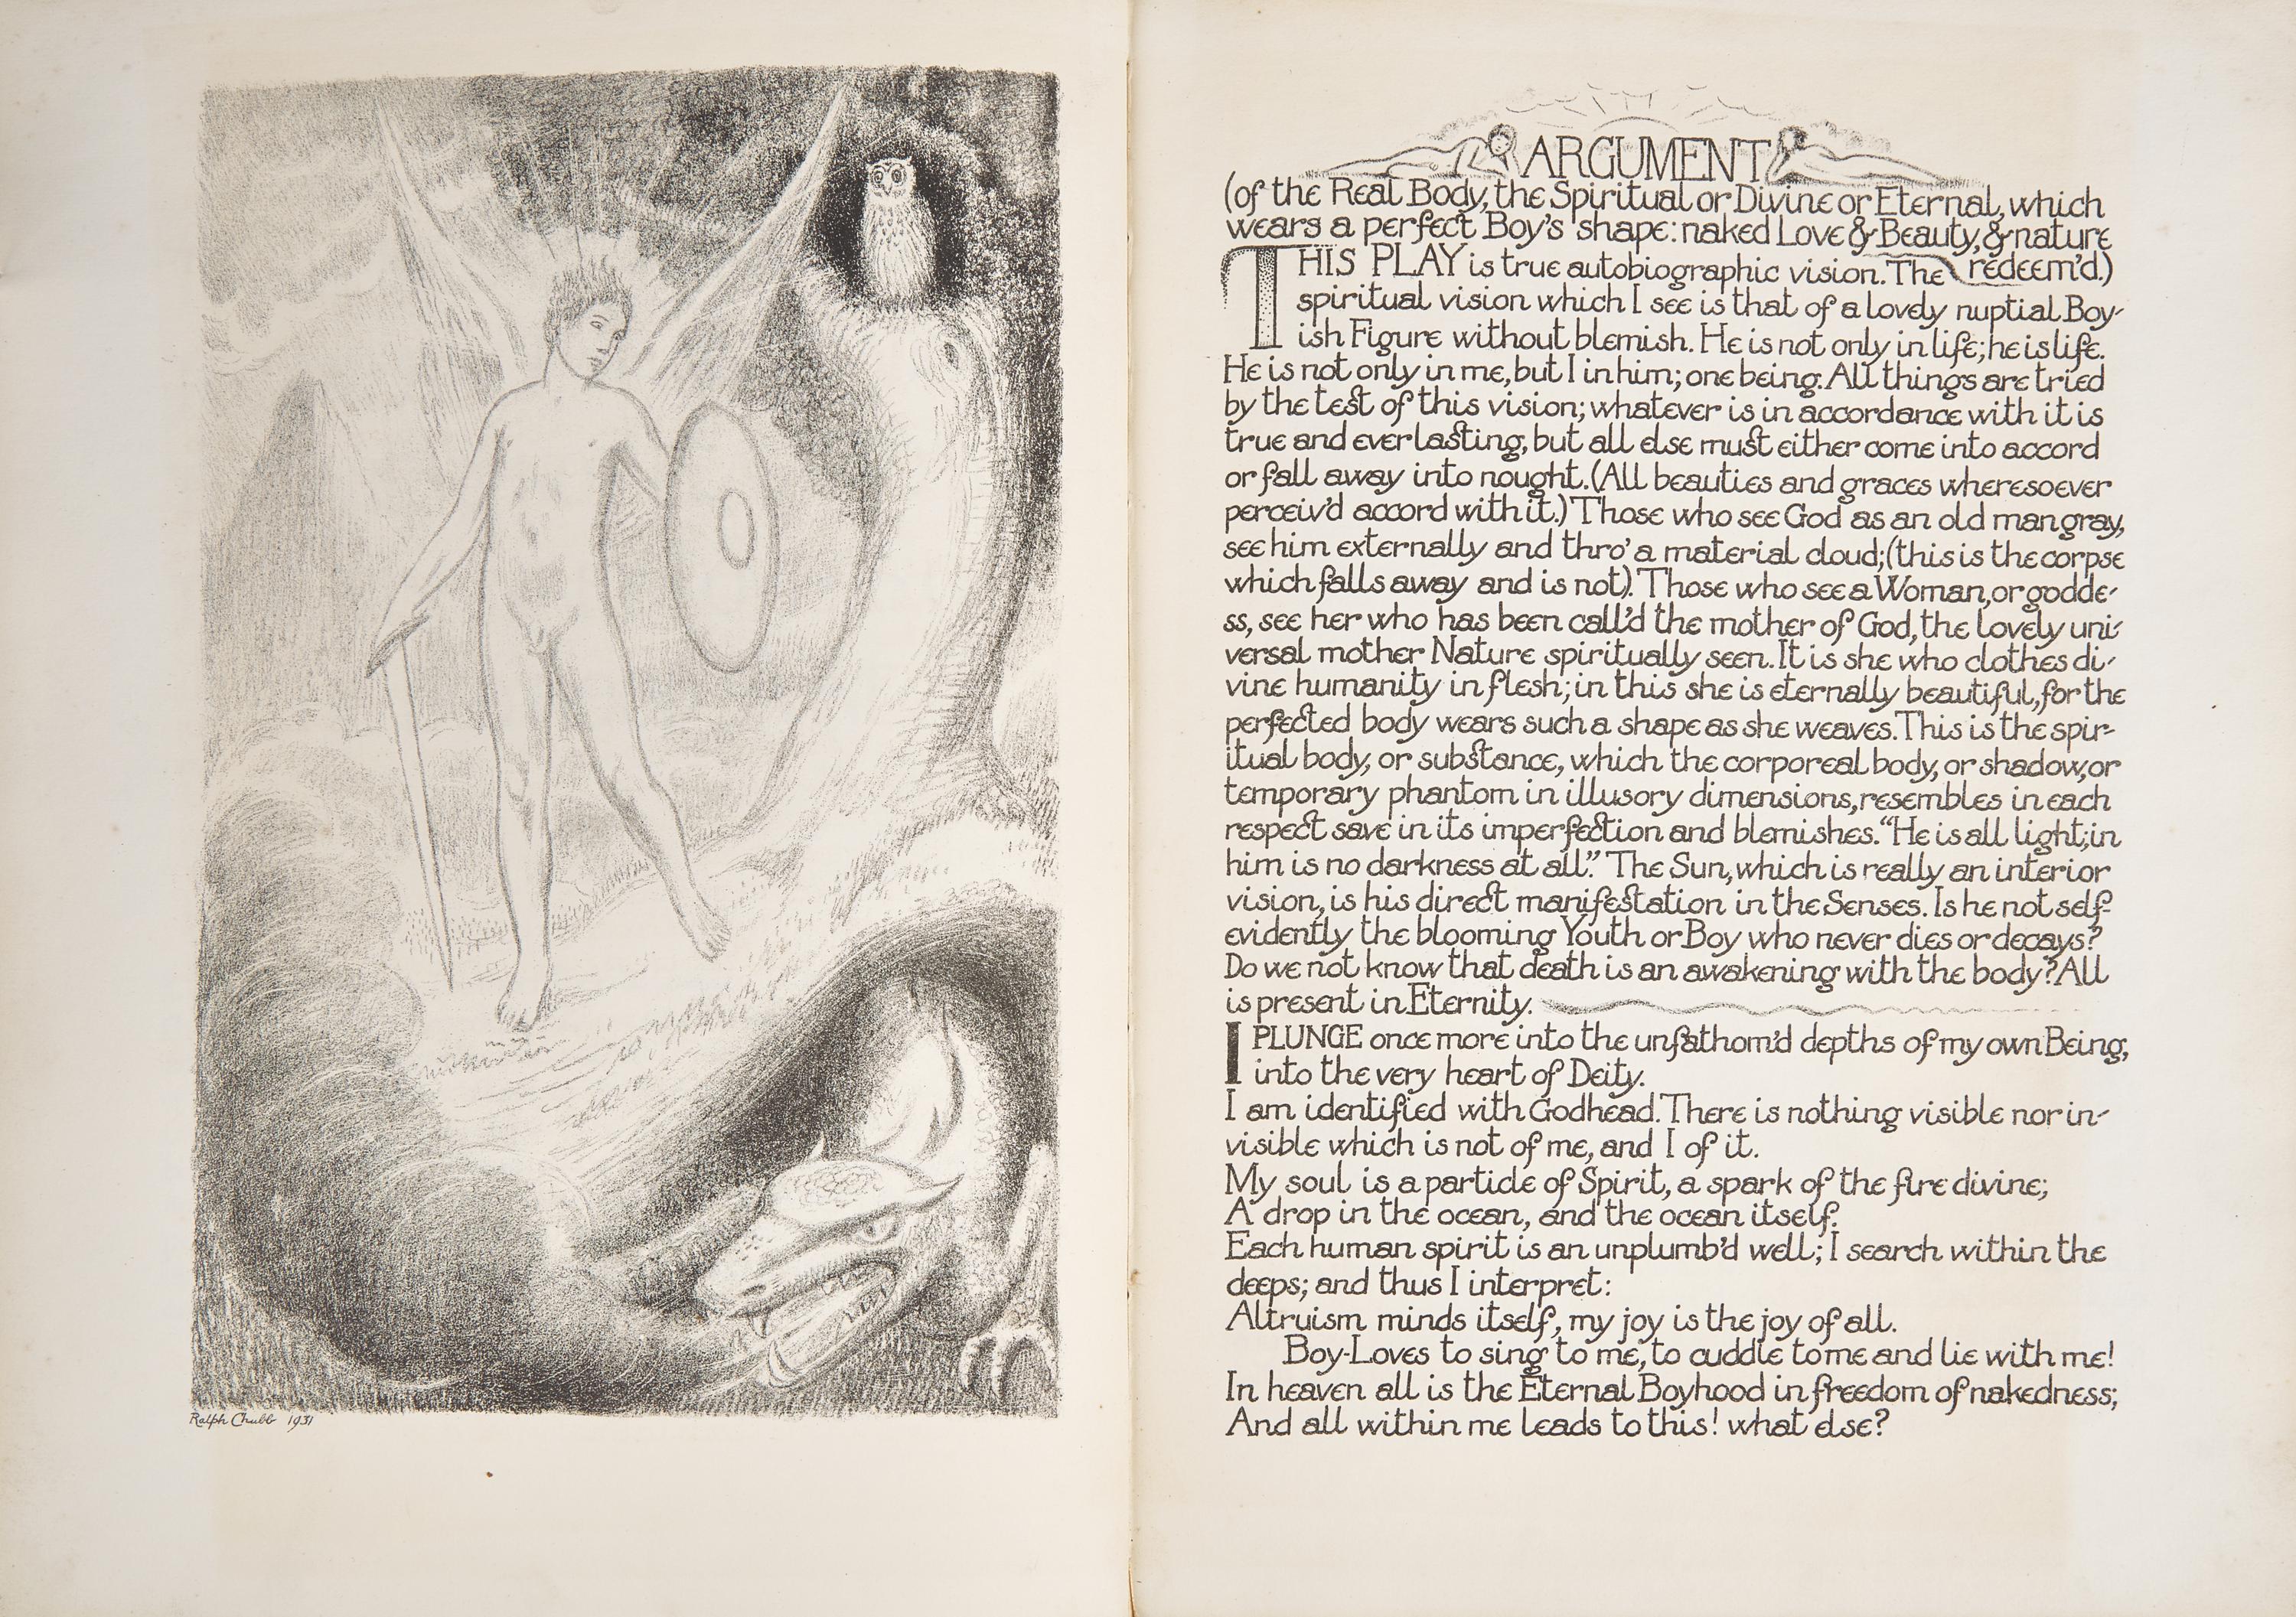 Ralph Chubb 1931
ARGUMENT
(of the Real Body, the Spiritual or Divine or Eternal, which
wears a perfect Boy's shape: naked Love & Beauty, & nature
redeem'd.)
THIS PLAY is true autobiographic vision. The
spiritual vision which I see is that of a lovely nuptial Boy-
ish Figure without blemish. He is not only in life; he is life.
He is not only in me, but I in him; one being. All things are tried
by the test of this vision; whatever is in accordance with it is
true and everlasting, but all else must either come into accord
or fall away into nought. (All beauties and graces wheresoever
perceiv'd accord with it.) Those who see God as an old man gray,
see him externally and thro' a material cloud; (this is the corpse
which falls away and is not). Those who see a Woman, or godde-
ss, see her who has been call'd the mother of God, the lovely uni-
versal mother Nature spiritually seen. It is she who clothes di-
vine humanity in flesh; in this she is eternally beautiful, for the
perfected body wears such a shape as she weaves. This is the spir-
itual body, or substance, which the corporeal body, or shadow, or
temporary phantom in illusory dimensions, resembles in each
respect save in its imperfection and blemishes. "He is all light; in
him is no darkness at all." The Sun, which is really an interior
vision, is his direct manifestation in the Senses. Is he not self-
evidently the blooming Youth or Boy who never dies or decays?
Do we not know that death is an awakening with the body? All
is present in Eternity.
I PLUNGE once more into the unfathom'd depths of my own Being,
into the very heart of Deity.
I am identified with Godhead. There is nothing visible nor in-
visible which is not of me, and I of it.
My soul is a particle of Spirit, a spark of the fire divine;
A drop in the ocean, and the ocean itself.
Each human spirit is an unplumb'd well; I search within the
deeps; and thus I interpret:
Altruism minds itself, my joy is the joy of all.
Boy-Loves to sing to me, to cuddle to me and lie with me!
In heaven all is the Eternal Boyhood in freedom of nakedness;
And all within me leads to this! what else?